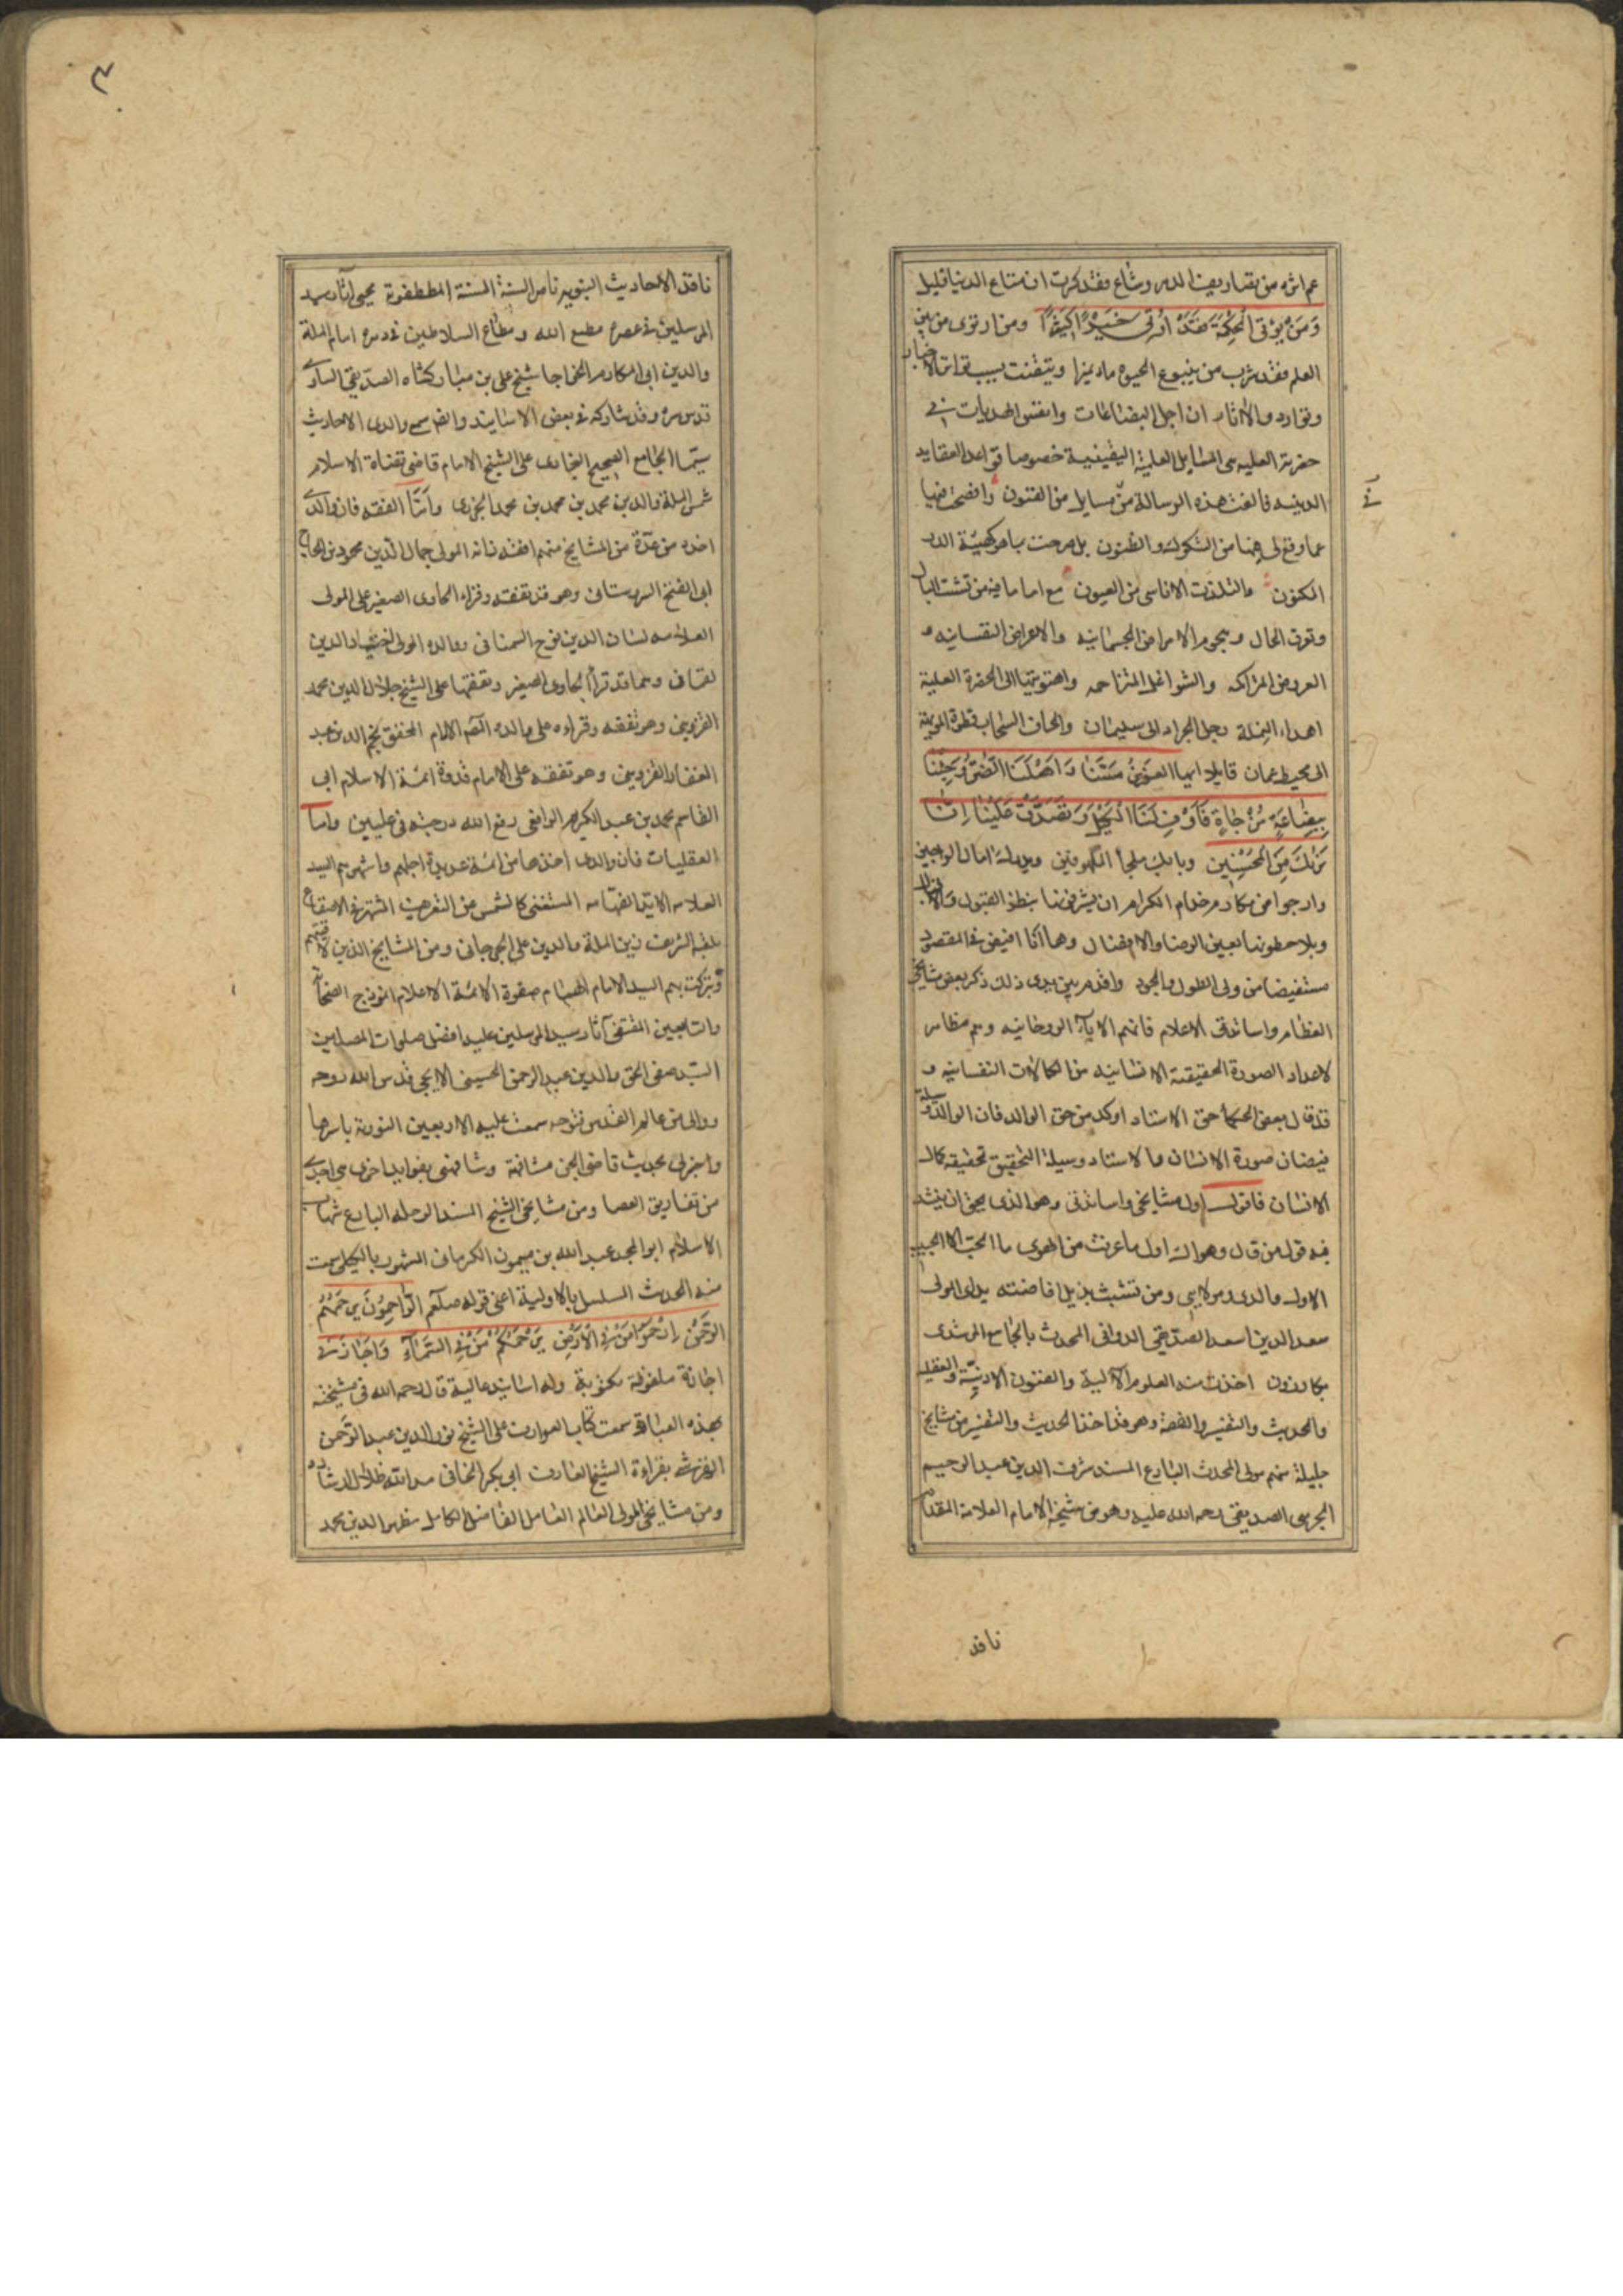 عم اثره من تصاريف الدهر وشاع فتذكرت ان متاع الدنيا قليل
وَمَنْ يُؤتى الْحِكْمَة فقَدْ اُوتِىَ خَيْرًا كَثِيرًا ومن ارتوى من بين
العلم فقد شرب من ينبوع الحيوه ماء نميرا وتيقنت بسبب تواتر الاخبار
وتوارد والاثار ان اجل البضاعات وانفس الهديات في
حضرته العليه هى المسايل العلمية اليقينية خصوصا قواعد العقايد
الدينيه فالفت هذه الرسالة من مسايل من الفنون وافصحت فيها
عما وقع لى فيها من الشكوك والظنون بل صرحت بما هو كهيئة الدر
المكنون والتلذت الاناسى من العيون مع اما ما فيه من تشتت البال
وتوزع الحال وهجوم الامراض الجسمانيه والاعراض النفسانيه و
العروض المتراكمه والشواغل المتزاحمه واهتويتها الى الحضرة العلية
اهداء النملة رجل الجراد الى سليمان واتحاف السحاب قطرة المزنة
الى محيط عمان قايلا ايها العزيز مَسَّنَا وَاَهْلَنَا الضُّرُّ وَجِئْنَا
بِبِضَاعَةٍ مُزْجَاةٍ فَاَوْفِ لَنَا الْكَيْلَ وَتَصَدَّقْ عَلَيْنَا اِنَّا
نَرٰيكَ مِنَ الْمُحْسِنِين وبابك ملجأ الملهوفين ويداك امال الراجين
وارجوا من مكارم خدام الكرام ان يشرفنا بنظر القبول والاقبال
ويلاحظونها بعين الرضا والافضال وها أنا افيض في المقصود
مستفيضا من ولى الطول والجود واقدم بين يدى ذلك ذكر بعض مشايخي
العظام واساتذتى الاعلام فانهم الاباء الروحانيه وهم مظاهر
لاعداد الصورة الحقيقية الانسانيه من الكمالات النفسانيه و
قد قال بعض الحكمأ حق الاستاد اوكد من حق الوالد فان الوالد وسيلة
فيضان صورة الانسان والاستاد وسيلة التحقيق تحقيقه كمال
الانسان فاقول اول مشايخى واساتذتى وهو الذى يحق ان ينشد
فيه قول من قال وهواك اول ما عرفت من الهوى ما الحب الا الحبيب
الاول والدى ومولاى ومن تشبث بذيل افاضته يداى المولى
سعد الدين اسعد الصديقى الدوانى المحدث بالجامع المرشدى
بكازرون اخذت منه العلوم الآلية والفنون الادبيّة والعقليه
والحديث والتفسير والفقه وهو قد اخذ الحديث والتفسير من مشايخ
جليلة منهم مولى المحدث البارع المسند شرف الدين عبد الرحيم
الجرهى الصديقى رحمه الله عليه وهو من مشيخة الامام العلامة المقدام
ناقد
٣
ناقد الأحاديث النبويه ناصر السنة السنية المصطفوية محيى آثار سيد
المرسلين في عصره مطيع الله ومطاع السلاطين في دهره امام الملة
والدين ابى المكارم الخواجا شيخ على بن مباركشاه الصديقى الساوى
قدس سره وقد شاركه في بعض الاسانيد وانضم سمع والدى الاحاديث
سيّما الجامع الصحيح البخارى على الشيخ الامام قاضى قضاة الاسلام
شمس الملة والدين محمد بن محمد بن محمد الجزرى وأمّا الفقه فان والدى
اخذه من عدّة من المشايخ منهم افقه زمانه المولى جمال الدين محمود بن الحاج
ابى الفتح السروستانى وهو قد تفقه وقراء الحاوى الصغير على المولى
العلامه لسان الدين نوح السمنانى ووالده المولى اختيار الدين
لقمان وهما قد قرأ الحاوى الصغير وتفقها على الشيخ جلال الدين محمد
القزوينى وهو تفقه وقراءه على والده القمر الامام المحقق نجم الدين عبد
الغفار القزوينى وهو تفقه على الامام قدوة ائمة الاسلام ابى
القاسم محمد بن عبد الكريم الرافعى رفع الله درجته فى عليين واما
العقليات فان والدى اخذها من ائمة عديدة اجلهم واشهرهم السيد
العلامه الآية الفهّامه المستغنى كالشمس عن التعريف المشتهر في الاصقاع
بلقبه الشريف زين الملة والدين على الجرجانى ومن المشايخ الذين لاقيتهم
وتبركت بهم السيد الامام الهمام صفوة الائمة الاعلام انموذج الصحابة
والتابعين المقتفى آثار سيد المرسلين عليه افضل صلوات المصلين
السيّد صفى الحق والدين عبد الرحمن الحسينى الايجى قدس الله روحه
ووالى من عالم القدس فتوحه سمعت عليه الاربعين النورية باسرها
واخبرنى بحديث قاضى الجن مشافهة وشافهنى بفوايد اخرى هى اجدى
من تفاريق العصا ومن مشايخى الشيخ المسند الرحله البارع شهاب
الاسلام ابو المجد عبد الله بن ميمون الكرمانى المشهور بالكيلى سمعت
منه الحديث المسلسل بالاولية اعنى قوله صلعم الرَّاحِمُونَ يَرحَمُهُم
الرَّحْمٰنُ اِرْحَمُوا مَنْ فِى الْاَرْضِ يَرْحَمْكُمْ مَنْ فِى السَّمَآءِ وَاَجَازَنِى
اجازة ملفوظة مكتوبة وله اسانيد عالية قال رحمه الله فى مشيخته
بهذه العبارة سمعت كتاب العوارف على الشيخ نور الدين عبد الرَّحمن
القرشى بقراءة الشيخ العارف ابى بكر الخافى مد الله ظلال ارشاده
ومن مشايخى المولى العالم العامل الفاضل الكامل مظهر الدين محمد